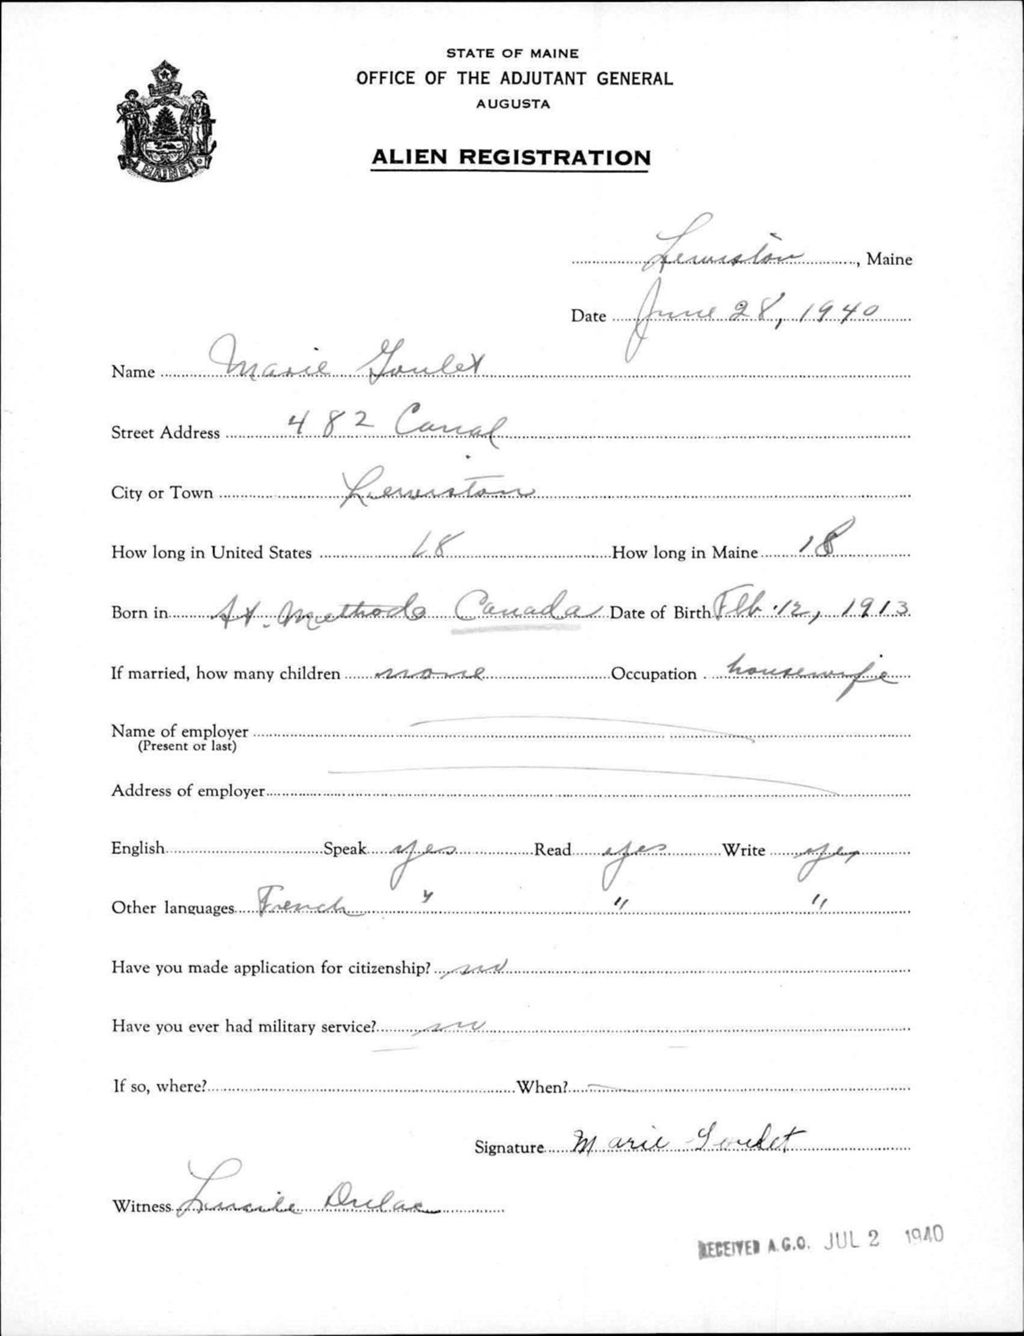 STATE OF MAINE
OFFICE OF THE ADJUTANT GENERAL
AUGUSTA
ALIEN REGISTRATION
MAINE
Lewiston, Maine
Date June 28, 1940
Name Marie Goulet
Street Address 482 Canal
City or Town Lewiston
How long in United States 18 How long in Maine 18
Born in St. Methode Canada Date of Birth Feb. 12, 1913
If married, how many children none Occupation housewife
Name of employer
(Present or last)
Address of employer
English Speak yes Read yes Write yes
Other languages French " " "
Have you made application for citizenship? no
Have you ever had military service? no
If so, where? When?
Signature Marie Goulet
Witness Lucile Dulac
RECEIVED A.G.O. JUL 2 1940